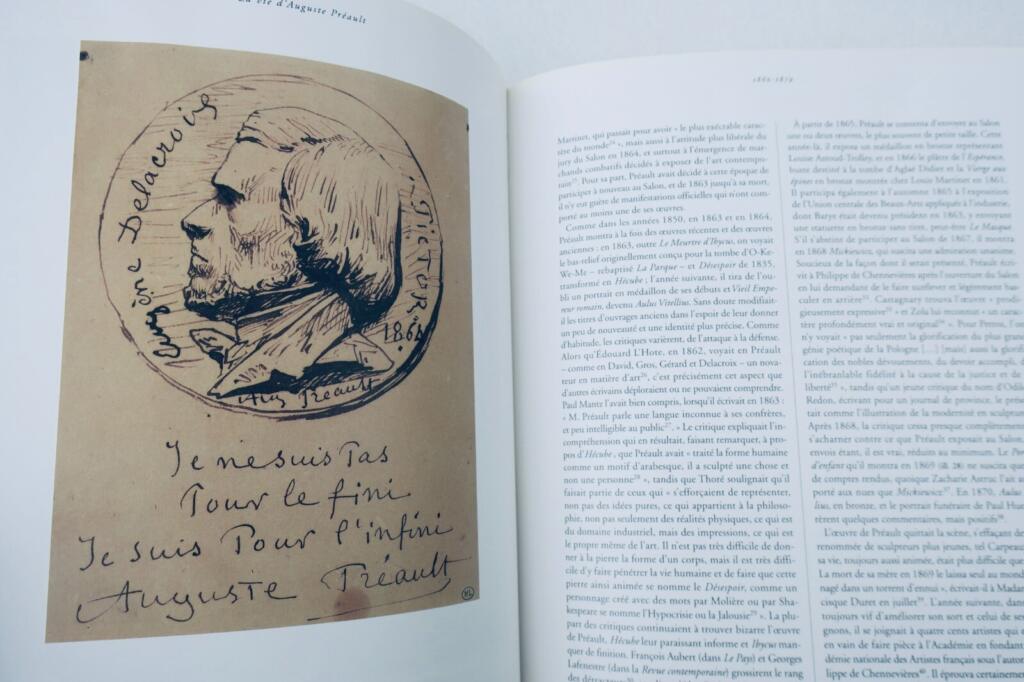 La vie d'Auguste Préault
Eugène Delacroix
PICTOR
1864
Aug Préault
Je ne suis Pas
Pour le fini
Je suis Pour l'infini
Auguste Préault
1860-1879
Martinet, qui passait pour avoir « le plus exécrable carac-
tère du monde²⁴ », mais aussi à l'attitude plus libérale du
jury du Salon en 1864, et surtout à l'émergence de mar-
chands combatifs décidés à exposer de l'art contempo-
rain²⁵. Pour sa part, Préault avait décidé à cette époque de
participer à nouveau au Salon, et de 1863 jusqu'à sa mort,
il n'y eut guère de manifestations officielles qui n'ont com-
porté au moins une de ses œuvres.
Comme dans les années 1850, en 1863 et en 1864,
Préault montra à la fois des œuvres récentes et des œuvres
anciennes : en 1863, outre Le Meurtre d'Ibycus, on voyait
le bas-relief originellement conçu pour la tombe d'O-Ke-
We-Me – rebaptisé La Parque – et Désespoir de 1835,
transformé en Hécube ; l'année suivante, il tira de l'ou-
bli un portrait en médaillon de ses débuts et Vieil Empe-
reur romain, devenu Aulus Vitellius. Sans doute modifiait-
il les titres d'ouvrages anciens dans l'espoir de leur donner
un peu de nouveauté et une identité plus précise. Comme
d'habitude, les critiques varièrent, de l'attaque à la défense.
Alors qu'Édouard L'Hote, en 1862, voyait en Préault
– comme en David, Gros, Gérard et Delacroix – un nova-
teur en matière d'art²⁶, c'est précisément cet aspect que
d'autres écrivains déploraient ou ne pouvaient comprendre.
Paul Mantz l'avait bien compris, lorsqu'il écrivait en 1863 :
« M. Préault parle une langue inconnue à ses confrères,
et peu intelligible au public²⁷. » Le critique expliquait l'in-
compréhension qui en résultait, faisant remarquer, à pro-
pos d'Hécube, que Préault avait « traité la forme humaine
comme un motif d'arabesque, il a sculpté une chose et
non une personne²⁸ », tandis que Thoré soulignait qu'il
faisait partie de ceux qui « s'efforçaient de représenter,
non pas des idées pures, ce qui appartient à la philoso-
phie, non pas seulement des réalités physiques, ce qui est
du domaine industriel, mais des impressions, ce qui est
le propre même de l'art. Il n'est pas très difficile de don-
ner à la pierre la forme d'un corps, mais il est très diffi-
cile d'y faire pénétrer la vie humaine et de faire que cette
pierre ainsi animée se nomme le Désespoir, comme un
personnage créé avec des mots par Molière ou par Sha-
kespeare se nomme l'Hypocrisie ou la Jalousie²⁹ ». La plu-
part des critiques continuaient à trouver bizarre l'œuvre
de Préault, Hécube leur paraissant informe et Ibycus man-
quer de finition. François Aubert (dans Le Pays) et Georges
Lafenestre (dans la Revue contemporaine) grossirent le rang
À partir de 1865, Préault se contenta d'envoyer au Salon
une ou deux œuvres, le plus souvent de petite taille. Cette
année-là, il exposa un médaillon en bronze représentant
Louise Astoud-Trolley, et en 1866 le plâtre de l'Espérance,
buste destiné à la tombe d'Aglaé Didier et la Vierge aux
épines en bronze montrée chez Louis Martinet en 1861.
Il participa également à l'automne 1865 à l'exposition
de l'Union centrale des Beaux-Arts appliqués à l'industrie,
dont Barye était devenu président en 1863, y envoyant
une statuette en bronze sans titre, peut-être Le Masque.
S'il s'abstint de participer au Salon de 1867, il montra
en 1868 Mickiewicz, qui suscita une admiration unanime.
Soucieux de la façon dont il serait présenté, Préault écri-
vit à Philippe de Chennevières après l'ouverture du Salon
en lui demandant de le faire surélever et légèrement bas-
culer en arrière³². Castagnary trouva l'œuvre « prodi-
gieusement expressive³³ » et Zola lui reconnut « un carac-
tère profondément vrai et original³⁴ ». Pour Pertus, l'on
n'y voyait « pas seulement la glorification du plus grand
génie poétique de la Pologne, [...] [mais] aussi la glorifi-
cation des nobles dévouements, du devoir accompli, de
l'inébranlable fidélité à la cause de la justice et de la
liberté³⁵ », tandis qu'un jeune critique du nom d'Odilon
Redon, écrivant pour un journal de province, le présen-
tait comme l'illustration de la modernité en sculpture
Après 1868, la critique cessa presque complètement
s'acharner contre ce que Préault exposait au Salon,
envois étant, il est vrai, réduits au minimum. Le Por
d'enfant qu'il montra en 1869 ne suscita que
de comptes rendus, quoique Zacharie Astruc l'ait
porté aux nues que Mickiewicz³⁷. En 1870, Aulus
lius, en bronze, et le portrait funéraire de Paul Huet
tèrent quelques commentaires, mais positifs³⁸.
L'œuvre de Préault quittait la scène, s'effaçant de
renommée de sculpteurs plus jeunes, tel Carpeaux
sa vie, toujours aussi animée, était plus difficile que
La mort de sa mère en 1869 le laissa seul au monde
nagé dans un torrent d'ennui », écrivait-il à Madame
cisque Duret en juillet³⁹. L'année suivante, dans
toujours vif d'améliorer son sort et celui de ses
gnons, il se joignait à quatre cents artistes qui
en vain de faire pièce à l'Académie en fondant
démie nationale des Artistes français sous l'autorité
lippe de Chennevières⁴⁰. Il éprouva certainement